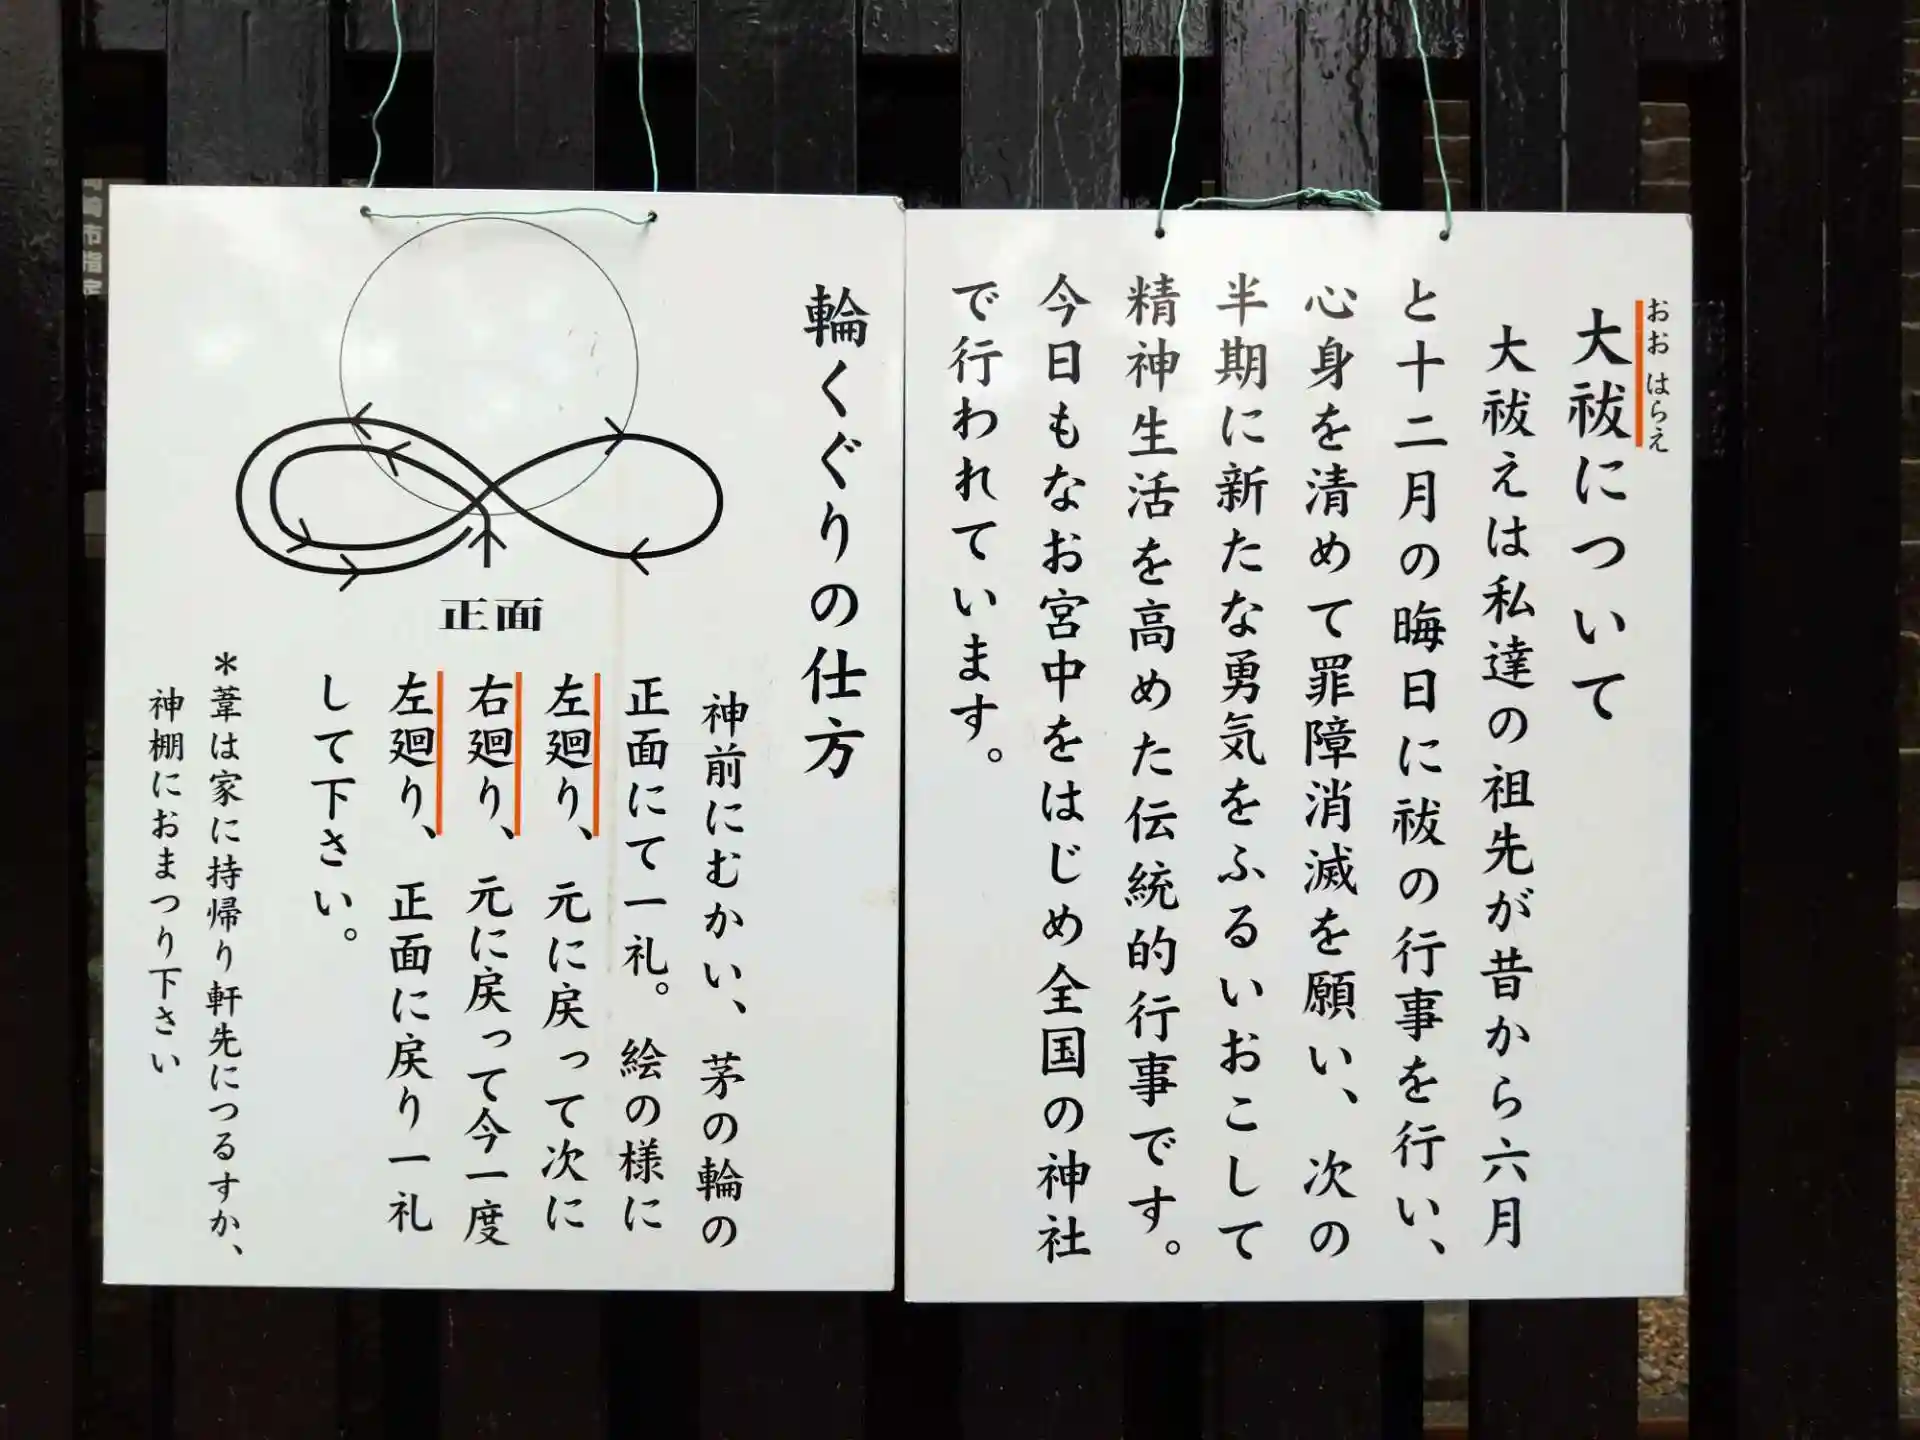 大祓について
おおはらえ
大祓えは私達の祖先が昔から六月
と十二月の晦日に祓の行事を行い、
心身を清めて罪障消滅を願い、次の
半期に新たな勇気をふるいおこして
精神生活を高めた伝統的行事です。
今日もなお宮中をはじめ全国の神社
で行われています。
輪くぐりの仕方
正面
神前にむかい、茅の輪の
正面にて一礼。絵の様に
左廻り、元に戻って次に
右廻り、元に戻って今一度
左廻り、正面に戻り一礼
して下さい。
*葦は家に持帰り軒先につるすか、
神棚におまつり下さい
市指定